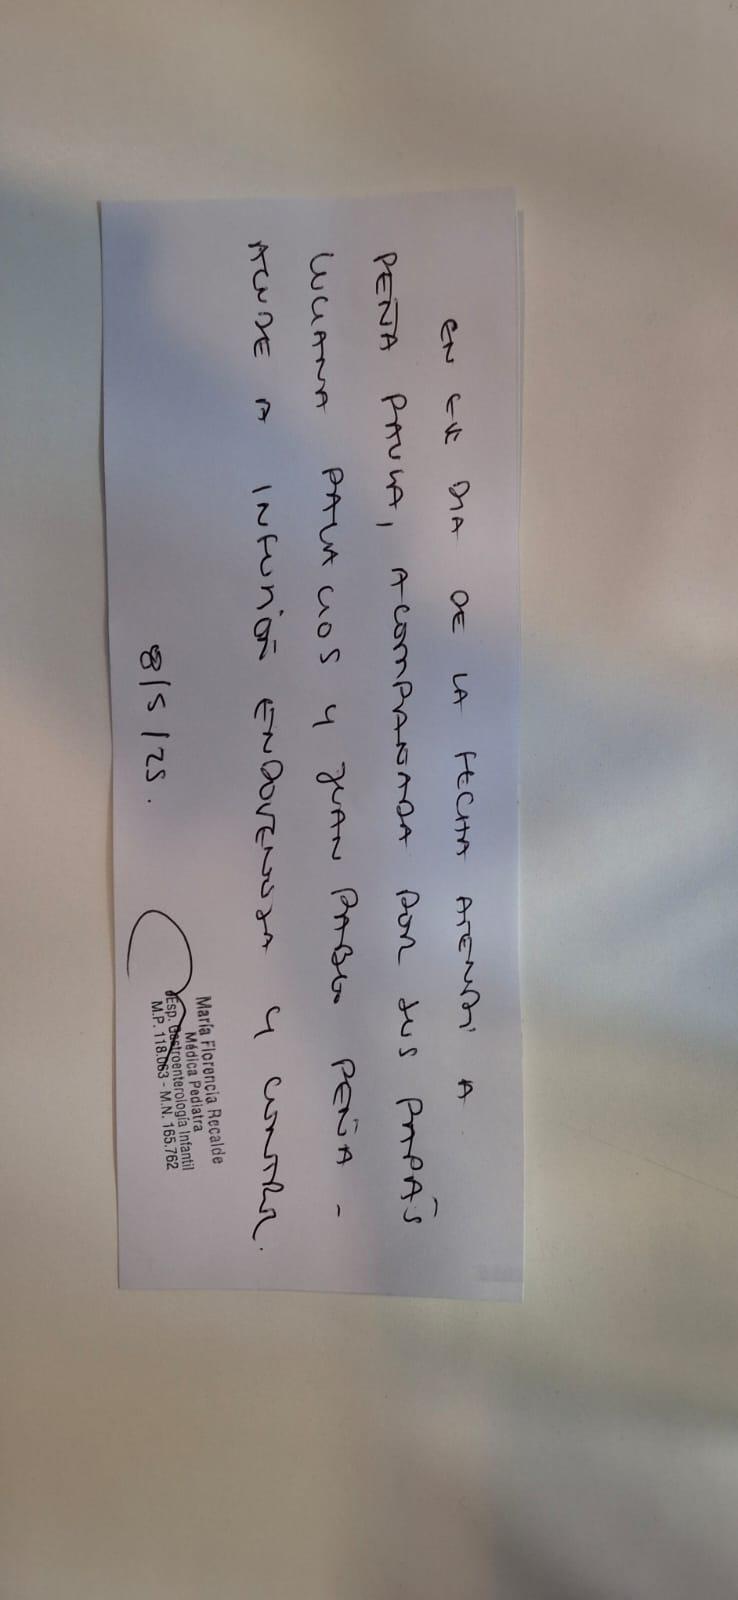 EN EL DIA DE LA FECHA ATENDÍ A
PEÑA PAULA, ACOMPAÑADA POR SUS PAPÁS
LUCIANA PALACIOS Y JUAN PABLO PEÑA -
ACUDE A INFUSIÓN ENDOVENOSA Y CONTROL.
8/5/25.
María Florencia Recalde
Médica Pediatra
Esp. Gastroenterología Infantil
M.P. 118.063 - M.N. 165.762